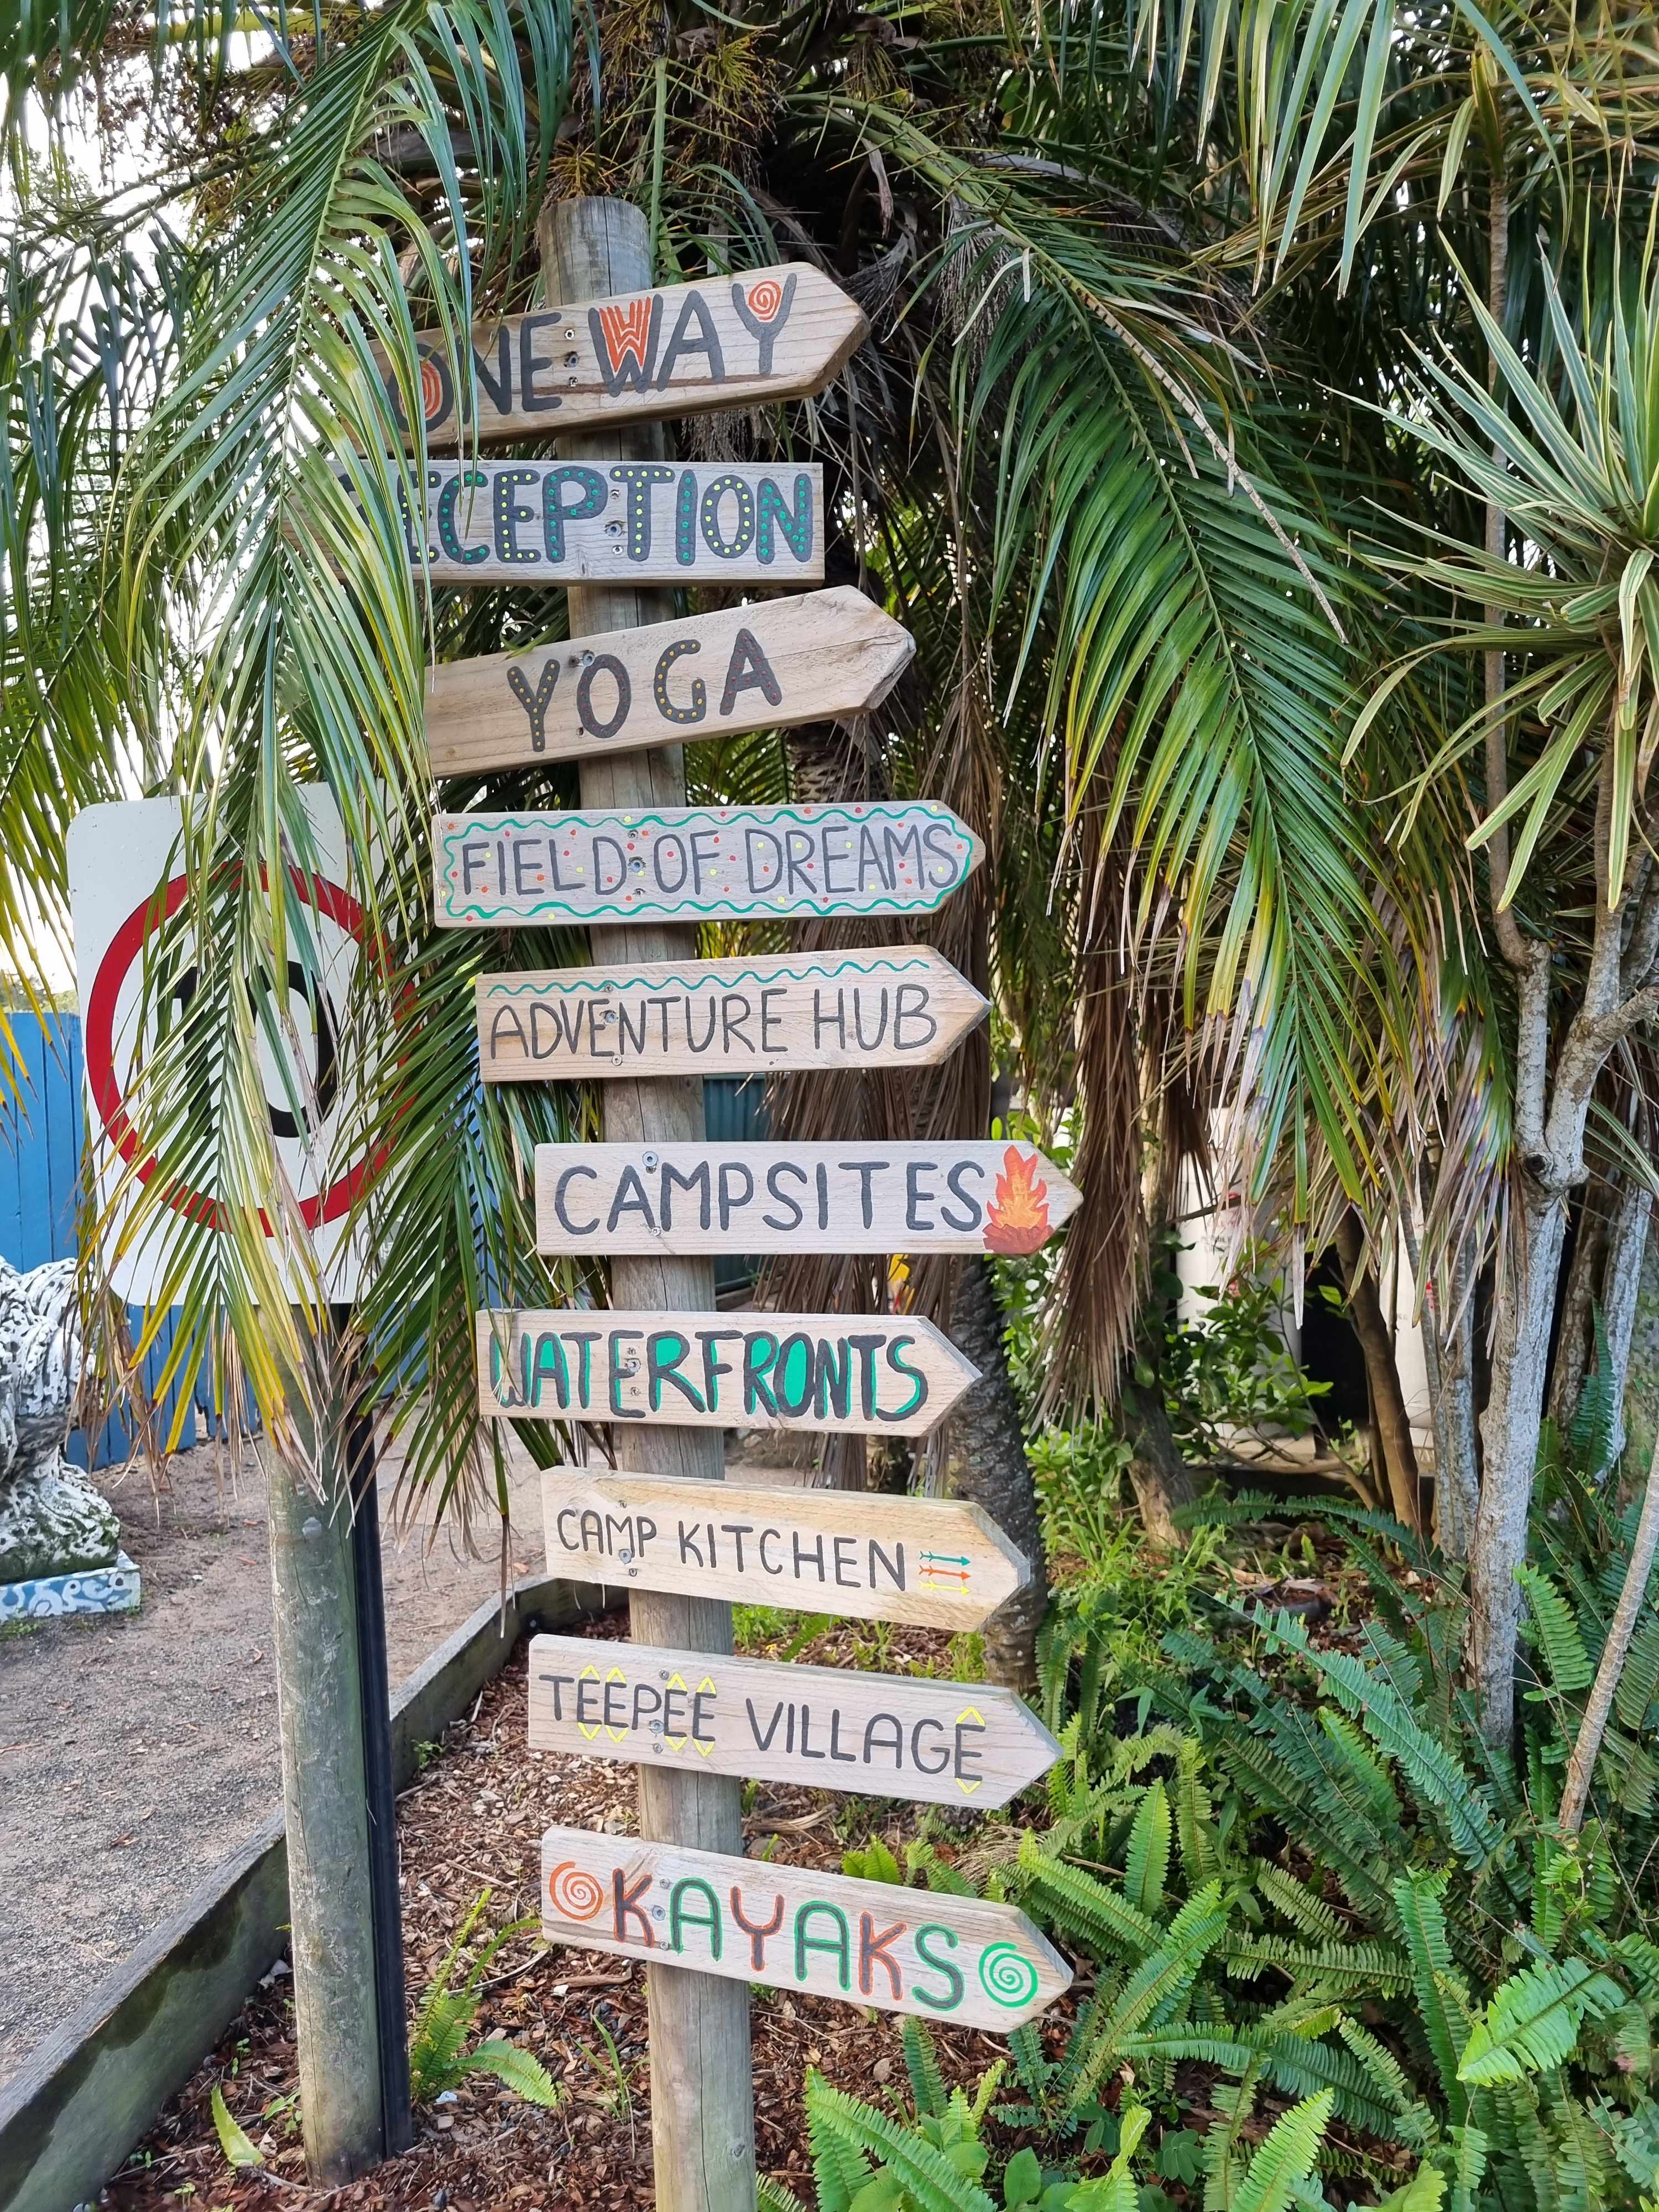 ONE WAY
RECEPTION
YOGA
FIELD OF DREAMS
ADVENTURE HUB
10
CAMPSITES
WATERFRONTS
CAMP KITCHEN
TEEPEE VILLAGE
KAYAKS